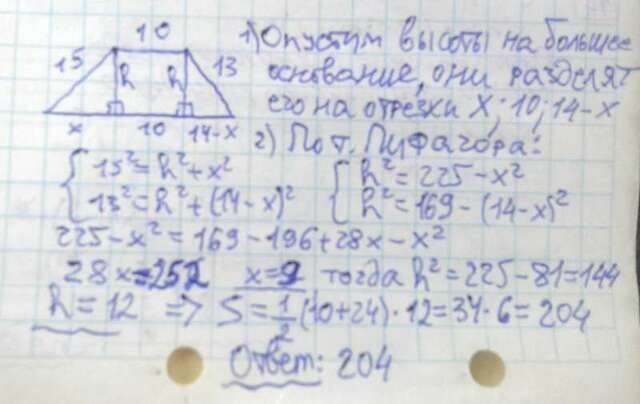 10
15 h h 13
x 10 14-x
1) Опустим высоты на большее
основание, они разделят
его на отрезки x; 10; 14-x
2) По т. Пифагора:
15² = h² + x²
13² = h² + (14-x)²
h² = 225 - x²
h² = 169 - (14-x)²
225 - x² = 169 - 196 + 28x - x²
28x = 252 x = 9 тогда h² = 225 - 81 = 144
h = 12 => S = 1/2 (10+24) · 12 = 34 · 6 = 204
Ответ: 204